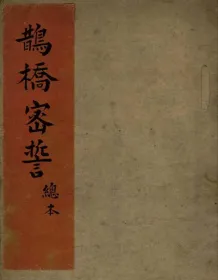 鵲橋密誓
總本